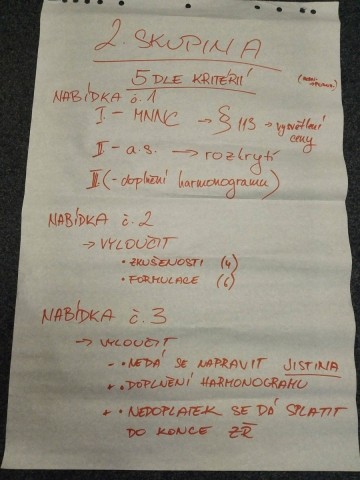 2. SKUPINA
5 DLE KRITÉRIÍ
NABÍDKA č. 1
I. - MNNC → § 113 → vysvětlení ceny
II - a.s. → rozkrytí
III. (- doplnění harmonogramu)
NABÍDKA č. 2
→ VYLOUČIT
• ZKUŠENOSTI (4)
• FORMULACE (6)
NABÍDKA č. 3
→ VYLOUČIT
- • NEDÁ SE NAPRAVIT JISTINA
+ • DOPLNĚNÍ HARMONOGRAMU
+ • NEDOPLATEK SE DÁ SPLATIT
DO KONCE ZŘ